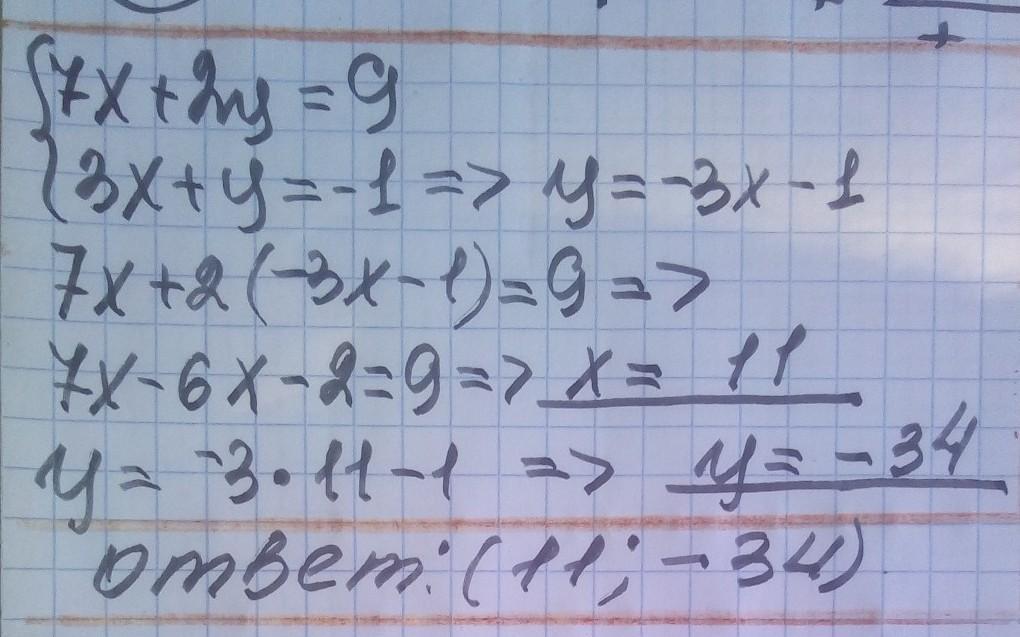 {7x+2y=9
{3x+y=-1 => y=-3x-1
7x+2(-3x-1)=9 =>
7x-6x-2=9 => x= 11
y= -3·11-1 => y=-34
ответ: (11; -34)